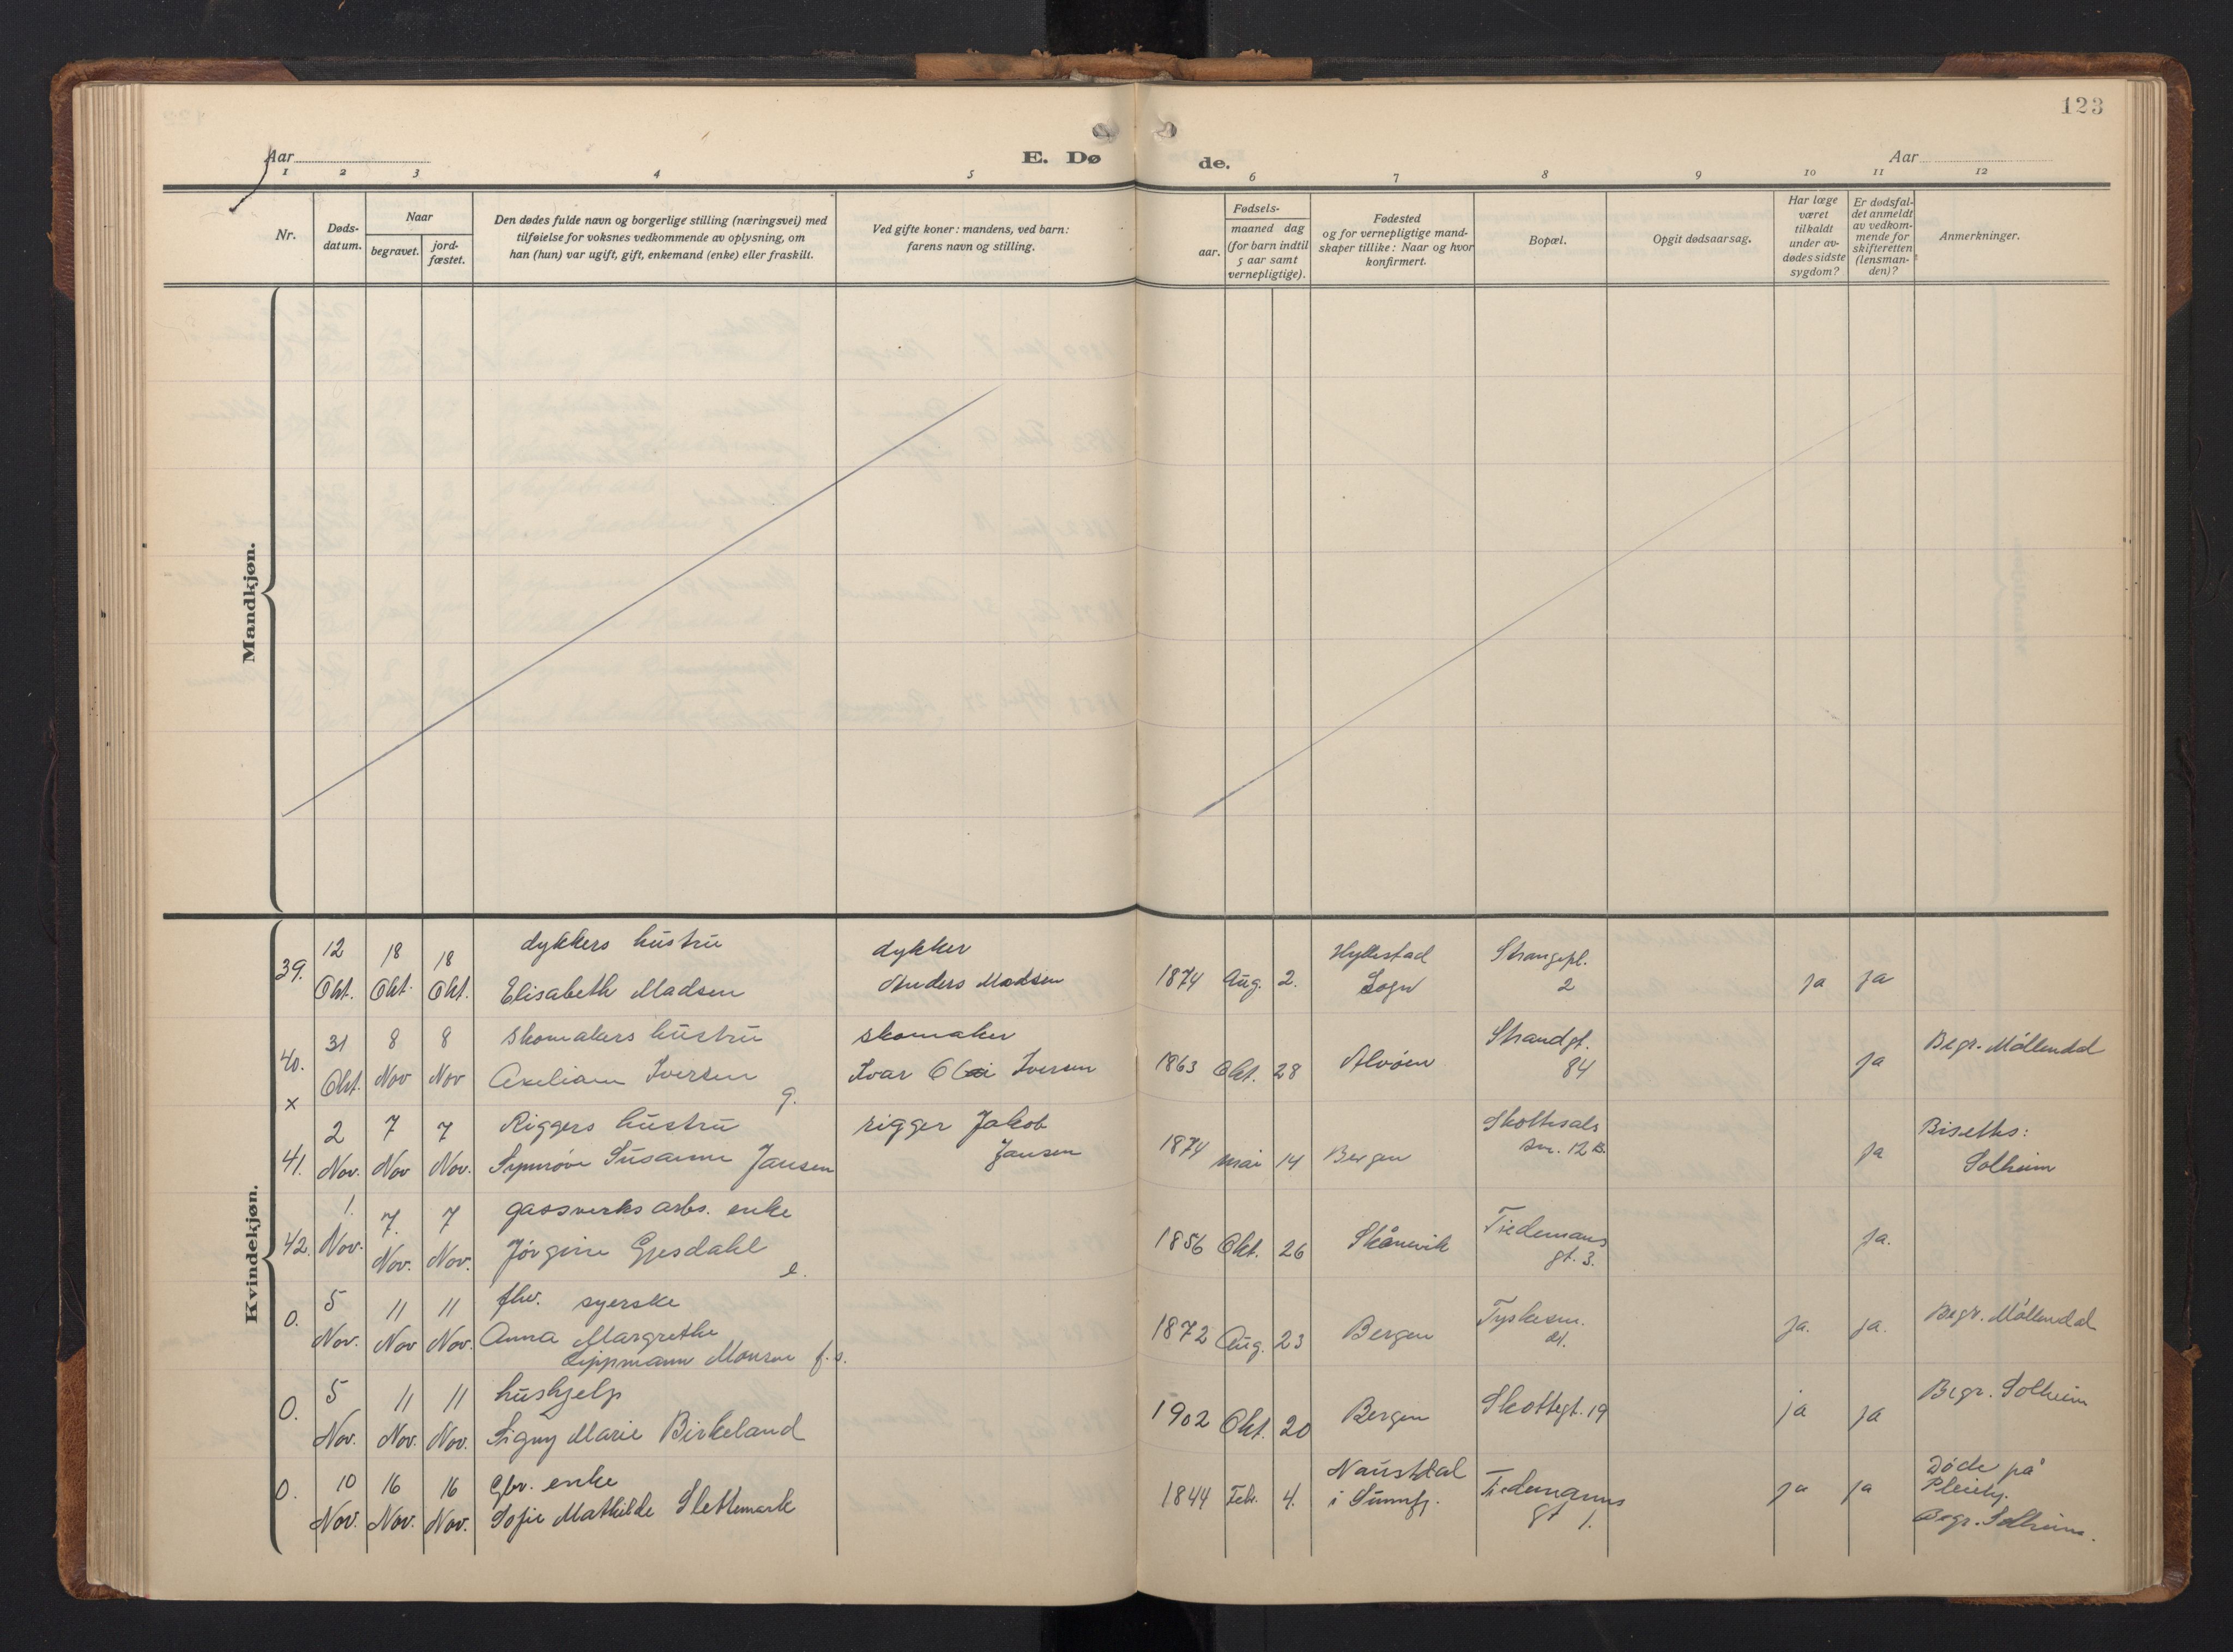 123
Aar
E. Dø
de.
Aar
1 2 3 4 5 6 7 8 9 10 11 12
Nr.
Døds-
datum.
Naar
begravet.
jord-
fæstet.
Den dødes fulde navn og borgerlige stilling (næringsvei) med
tilføielse for voksnes vedkommende av oplysning, om
han (hun) var ugift, gift, enkemand (enke) eller fraskilt.
Ved gifte koner: mandens, ved barn:
farens navn og stilling.
Fødsels-
aar.
maaned dag
(for barn indtil
5 aar samt
vernepligtige).
Fødested
og for vernepligtige mand-
skaper tillike: Naar og hvor
konfirmert.
Bopæl.
Opgit dødsaarsag.
Har læge
været
tilkaldt
under av-
dødes sidste
sygdom?
Er dødsfal-
det anmeldt
av vedkom-
mende for
skifteretten
(lensman-
den)?
Anmerkninger.
Mandkjøn.
Kvindekjøn.
12 18 18 dykkers hustru dykker Hyllestad Strangepl.
39. Okt. Okt. Okt. Elisabeth Madsen Anders Madsen 1874 Aug. 2. Sogn 2 ja ja
31 8 8 skomakers hustru skomaker Strandgt. Begr. Möllendal
40. Okt. Nov Nov Iversen Ivar Iversen 1863 Okt. 28 Alvøen 84 ja
x g.
2 7 7 Riggers hustru rigger Jakob Bisettes:
41. Nov. Nov Nov. Synnøve Susanne Jansen Jansen 1874 mai 14 Bergen sm. 12 B. ja Solheim
1. 7. 7 gassverks arb. enke Tiedemans
42. Nov. Nov. Nov. Jørgine Gjesdahl 1856 Okt. 26 Skånevik gt. 3. ja.
e.
5 11 11 fhv. syerske Tyskesm. Begr. Möllendal
0. Nov. Nov Nov. Anna Margrethe 1872 Aug. 23 Bergen ja. ja.
Lippmann Monsen f. s.
5 11 11 hushjelp Begr. Solheim
0. Nov. Nov. Nov. Signy Marie Birkeland 1902 Okt. 20 Bergen Skottegt. 19 ja ja
10 16 16 Gbr. enke Naustdal Tiedemanns Døde på
0. Nov. Nov. Nov. Sofie Mathilde Slettemark 1844 Feb. 4. i Sunnfj. gt 1. ja ja Pleiehj.
Begr. Solheim.